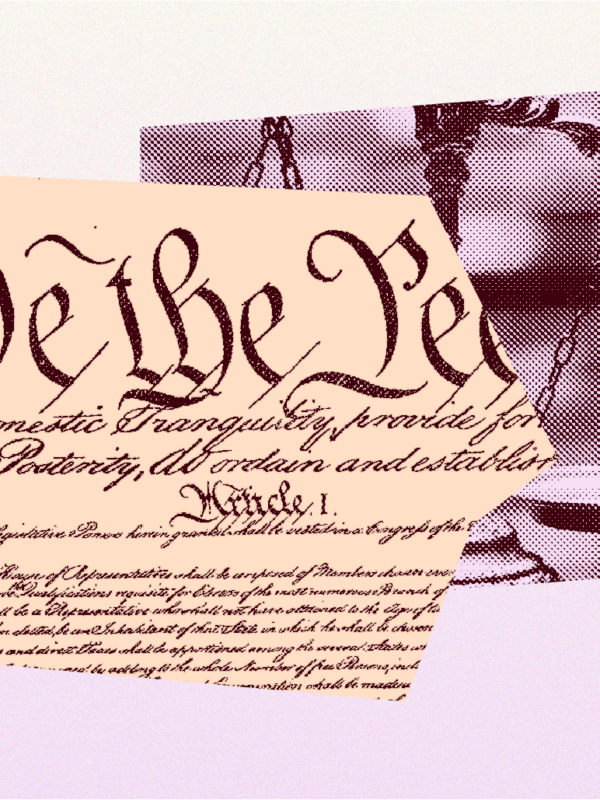 We the Peo
mestic Tranquility, provide for
Posterity, do ordain and establish
Article. I.
egislative Powers herein granted shall be vested in a Congress of the
House of Representatives shall be composed of Members chosen every
Qualifications requisite for Electors of the most numerous Branch of
ll be a Representative who shall not have attained to the Age of
elected, be an Inhabitant of that State in which he shall be chosen
and direct Taxes shall be apportioned among the several States
by adding to the whole Number of free Persons,
shall be made